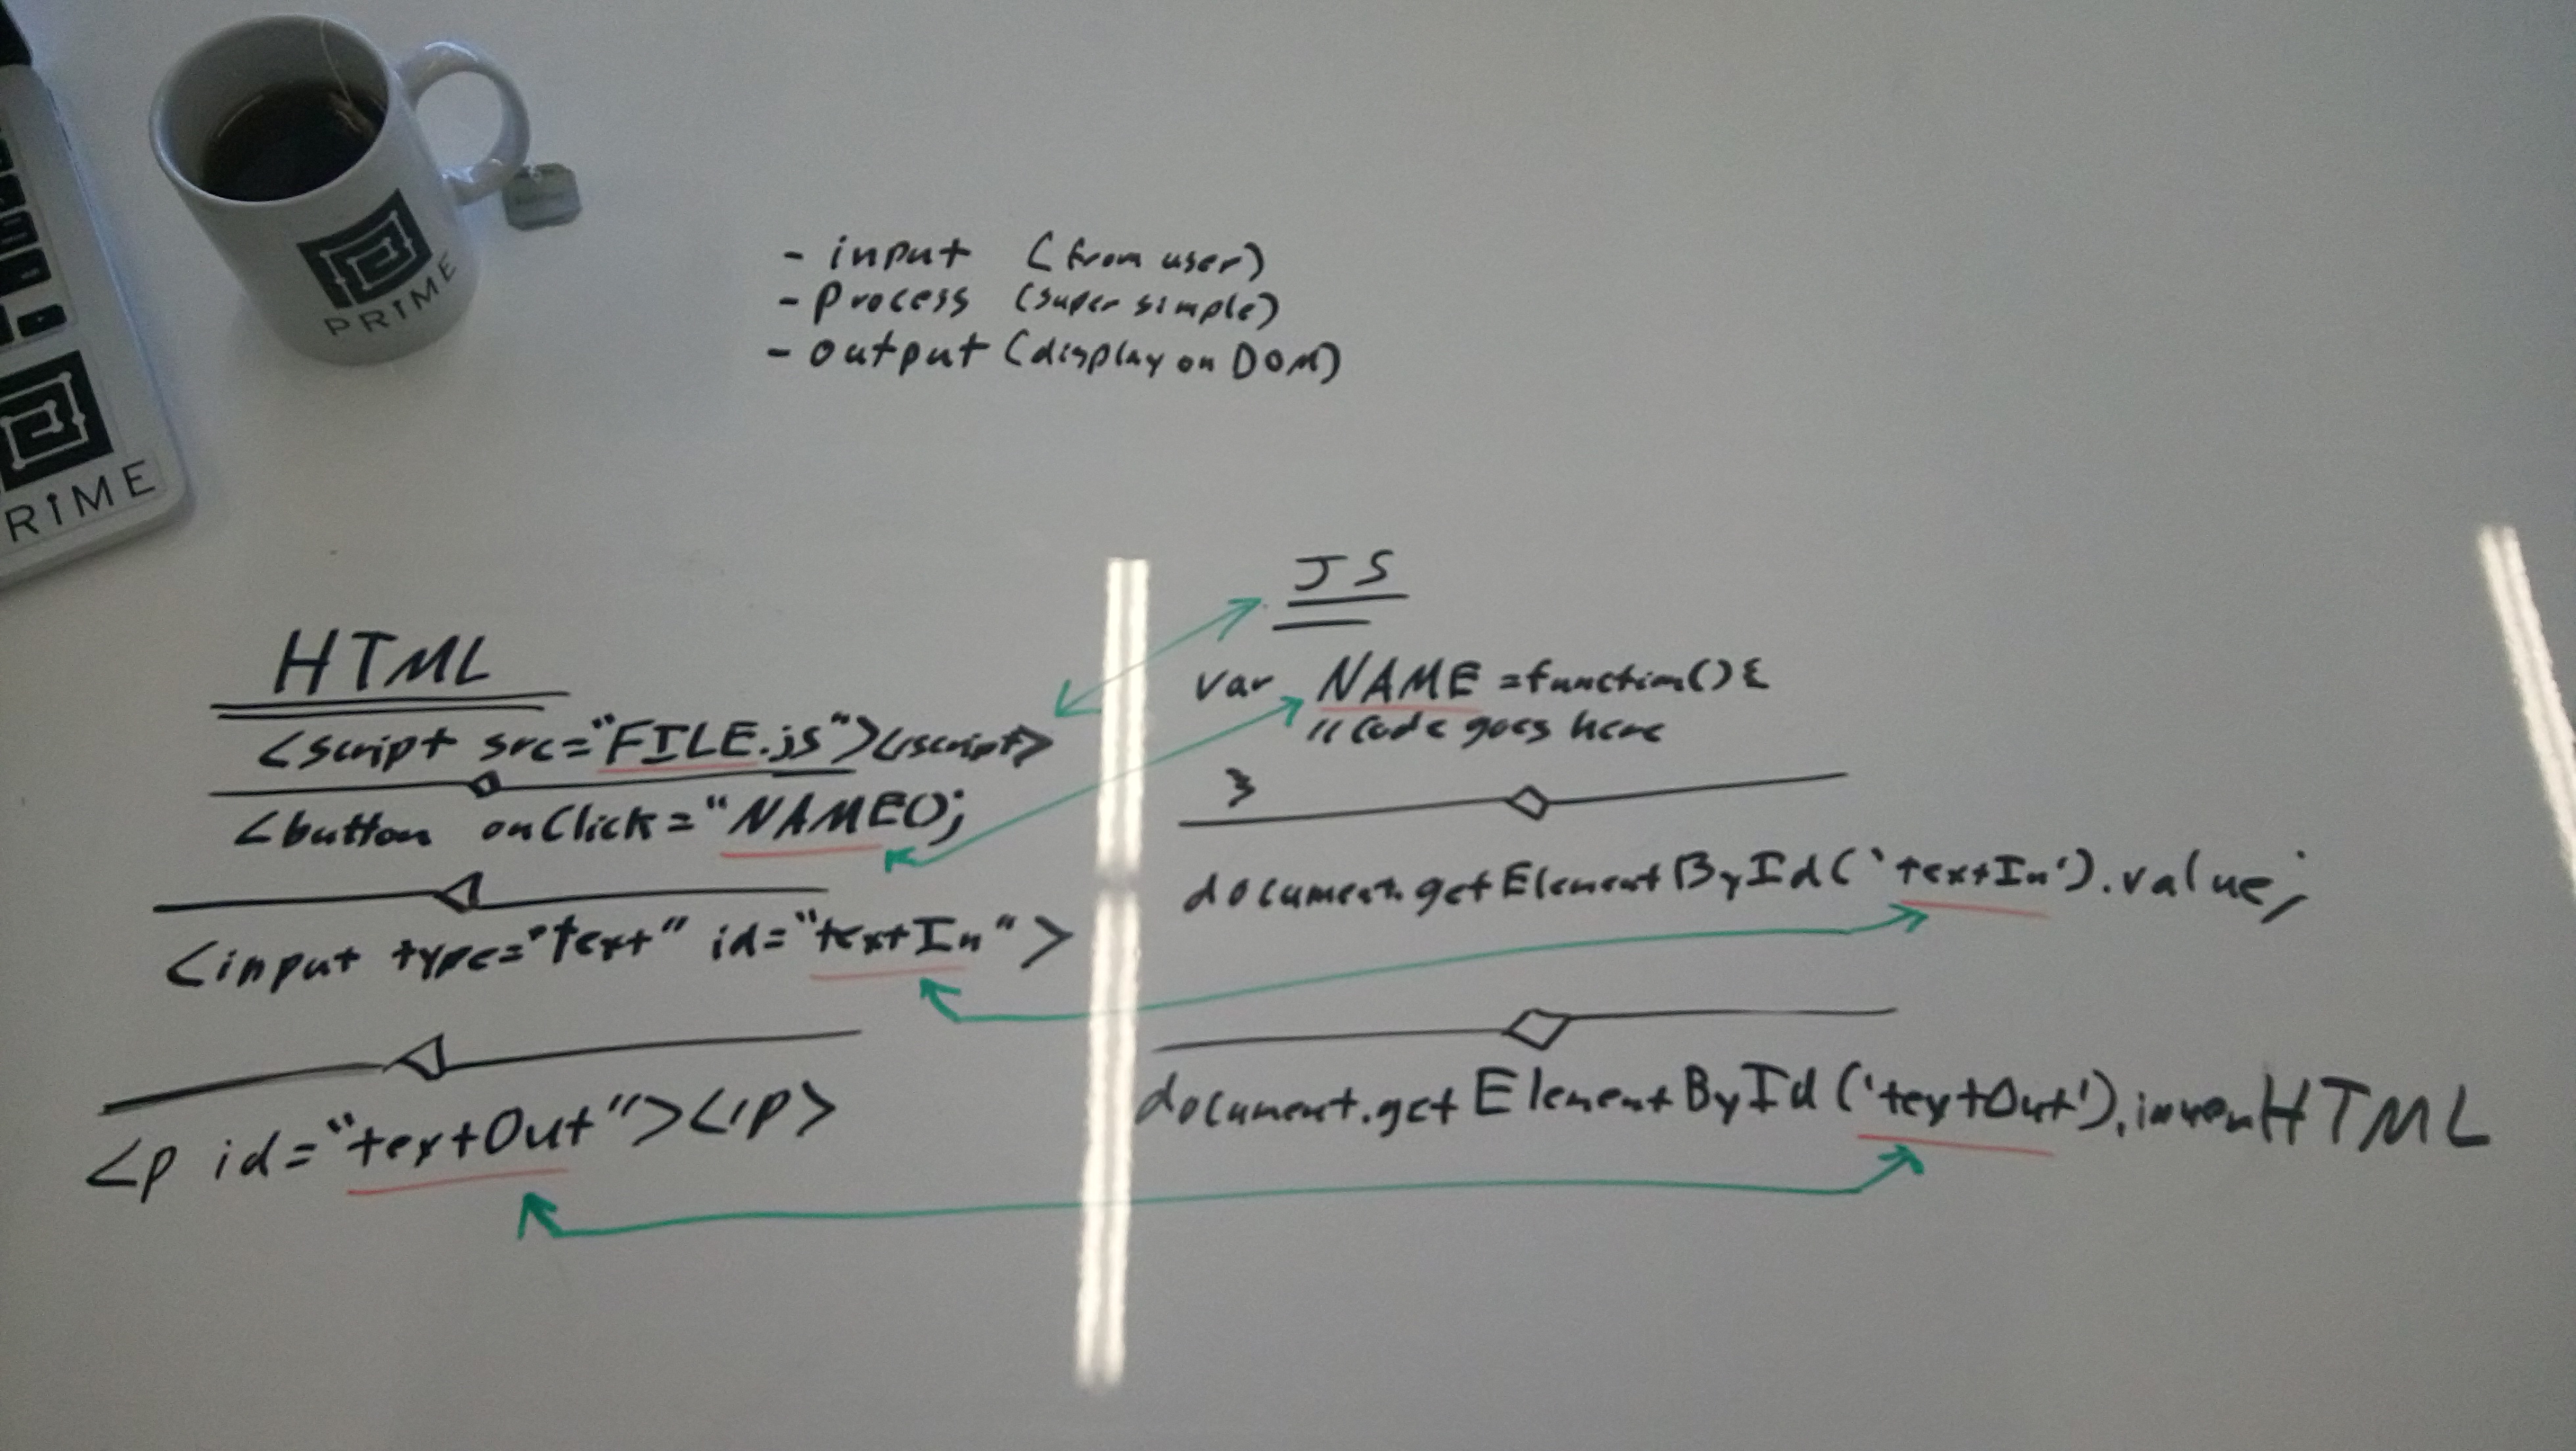 PRIME
RIME
- input (from user)
- process (super simple)
- output (display on DOM)
HTML
<script src="FILE.js"></script>
<button onClick="NAME();
<input type="text" id="textIn">
<p id="textOut"></p>
JS
var NAME =function(){
//code goes here
}
document.getElementById('textIn').value;
document.getElementById('textOut').innerHTML